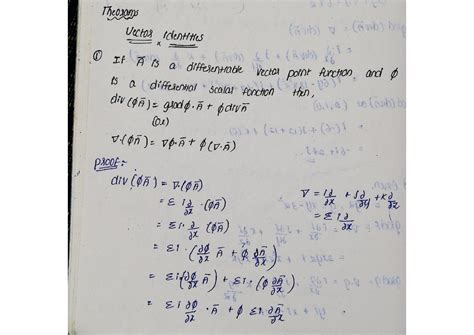 Theorems
Vector Identities
① If Ā is a differentiable vector point function, and ϕ
is a differential scalar function then,
div(ϕĀ) = gradϕ·Ā + ϕdivĀ
(or)
∇·(ϕĀ) = ∇ϕ·Ā + ϕ(∇·Ā)
proof:-
div(ϕĀ) = ∇·(ϕĀ)
∇ = i∂/∂x + j∂/∂y + k∂/∂z
= Σ i∂/∂x ·(ϕĀ)
= Σ i∂/∂x
= Σ i· ∂/∂x (ϕĀ)
= Σ i·(∂ϕ/∂x Ā + ϕ ∂Ā/∂x)
= Σ i·(∂ϕ/∂x Ā) + Σ i·(ϕ ∂Ā/∂x)
= Σ i ∂ϕ/∂x ·Ā + Σ i·(ϕ ∂Ā/∂x)